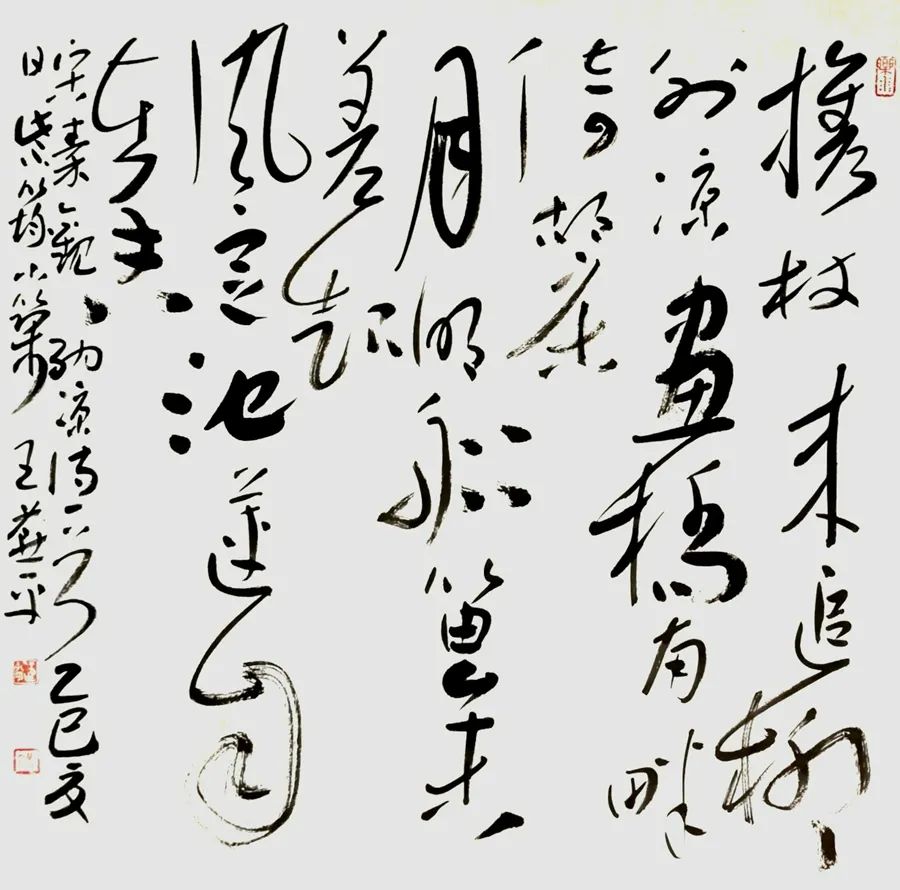 攜杖来追柳
外凉畫橋南畔
倚胡床
月明船笛参
差起
風定池蓮自
在香
宋秦觀納凉诗一首 乙巳夏
日紫筠小築 王燕平